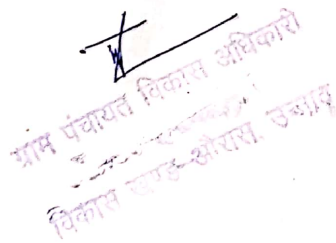 ग्राम पंचायत विकास अधिकारी
विकास खण्ड-औरास, उन्नाव